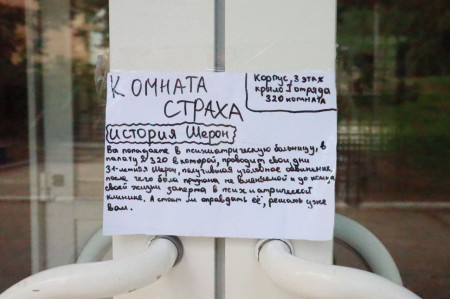 КОМНАТА
СТРАХА
Корпус, 3 этаж
крыло 1 отряда
320 комната
История Шерон
Вы попадаете в психиатрическую больницу, в
палату 320 в которой, проводит свои дни
31-летняя Шерон, получившая уголовное обвинение,
после чего была признана не вменяемой и до конца
своей жизни заперта в психиатрической
клинике. А стоит ли оправдать её, решать уже
вам.